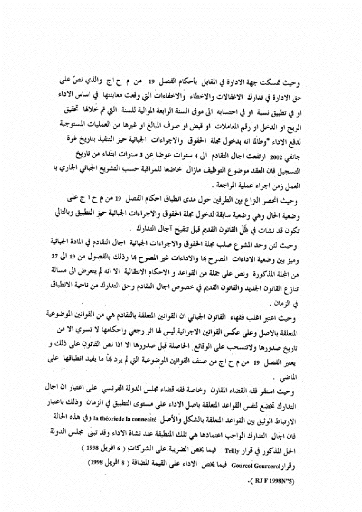 وحيث تمسكت جهة الادارة في المقابل بأحكام الفصل 19 من م ح ا ج والذي نص على
حق الادارة في تدارك الاغفالات والاخطاء والاخفاءات التي وقعت معاينتها في اساس الاداء
او في تطبيق نسبة او في احتسابه الى موفى السنة الرابعة الموالية للسنة التي تم خلالها تحقيق
الربح او الدخل او رقم المعاملات او قبض او صرف المبالغ او غيرها من العمليات المستوجبة
لدفع الاداء "وطالما انه بدخول مجلة الحقوق والاجراءات الجبائية حيز التنفيذ بتاريخ غرة
جانفي 2002 ارتفعت اجال التقادم الى 4 سنوات عوضا عن 3 سنوات ابتداء من تاريخ
التسجيل فان العقد موضوع التوظيف مازال خاضعا للمراقبة حسب التشريع الجبائي الجاري به
العمل زمن اجراء عملية المراجعة .
وحيث انحصر النزاع بين الطرفين حول مدى انطباق احكام الفصل 19 من م ح ا ج على
وضعية الحال وهي وضعية سابقة لدخول مجلة الحقوق والاجراءات الجبائية حيز التطبيق وبالتالي
تكون قد نشات في ظل القانون القديم قبل تنقيح آجال التدارك .
وحيث لئن وحد المشرع صلب مجلة الحقوق والاجراءات الجبائية اجال التقادم في المادة الجبائية
وميز بين وضعية الاداءات المصرح بها والاداءات غير المصرح بها وذلك بالفصول من 19 الى 27
من المجلة المذكورة ونص على جملة من القواعد و الاحكام الانتقالية الا انه لم يتعرض الى مسالة
تنازع القانون الجديد والقانون القديم في خصوص اجال التقادم وحق التدارك من ناحية الانطباق
في الزمان .
وحيث اعتبر اغلب فقهاء القانون الجبائي ان القوانين المتعلقة بالتقادم هي من القوانين الموضوعية
المتعلقة بالاصل وعلى عكس القوانين الاجرائية ليس لها اثر رجعي واحكامها لا تسري الا من
تاريخ صدورها ولاتنسحب على الوقائع الحاصلة قبل صدورها الا اذا نص القانون على ذلك و
يعتبر الفصل 19 من م ح ا ج من صنف القوانين الموضوعية التي لم يرد بها ما يفيد انطباقها على
الماضي .
وحيث استقر فقه القضاء المقارن وخاصة فقه قضاء مجلس الدولة الفرنسي على اعتبار ان اجال
التدارك تخضع لنفس القواعد المتعلقة باصل الاداء على مستوى التطبيق في الزمان وذلك باعتبار
الارتباط الوثيق بين القواعد المتعلقة بالشكل والأصل la théorie de la connexité وفي هذه الحالة
فان اجال التدارك الواجب اعتمادها هي تلك المنطبقة عند نشاة الاداء وقد تبنى مجلس الدولة
الحل المذكور في قرار Teilly فيما يخص الضريبة على الشركات ( 6 افريل 1998 )
وقرار Gourcol Gourcorol فيما يخص الاداء على القيمة المضافة ( 8 افريل 1998)
(RJ F 1998N°5 ).